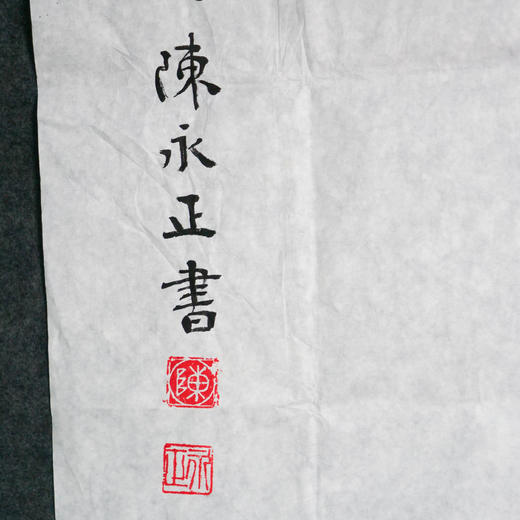 陳永正書
陳
永正